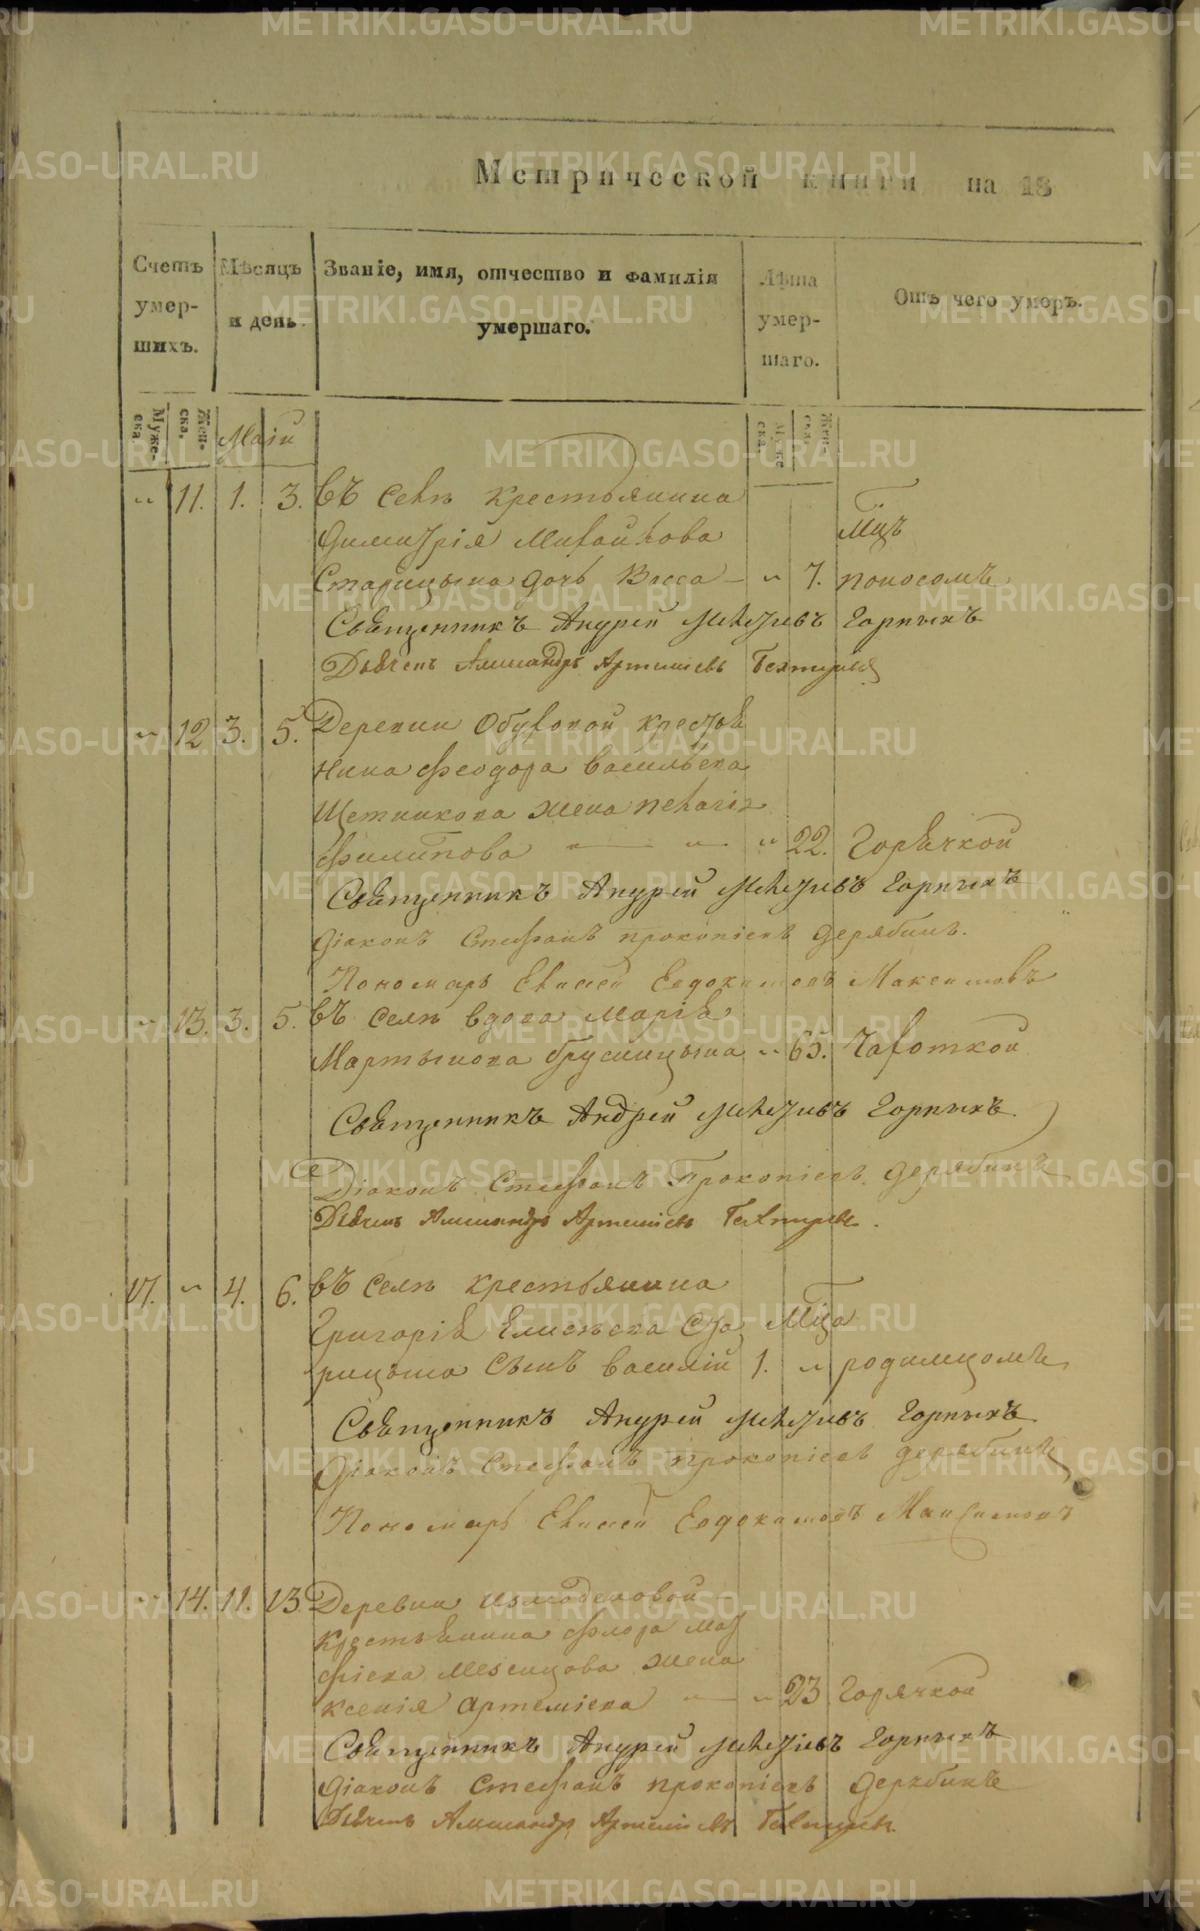 METRIKI.GASO-URAL.RU
Метрической книги на 18
Счетъ умер-шихъ.
Мѣсяцъ и день.
Званіе, имя, отчество и фамилія умершаго.
Лѣта умер-шаго.
Отъ чего умеръ.
Муже-ска
Жен-ска.
Муже ска.
Жен-ска.
Маія
" 11. 1. 3. въ селѣ крестьянина
Димитрія Михайлова мцъ
Старицына дочь Васса — " 7. поносомъ
Священникъ Андрей Горныхъ
Дьячекъ Александръ Артеміевъ
" 12 3. 5. Деревни Обуховой крестья
нина Феодора Васильева
Щетникова жена Пелагія
Филипова — " — " 22. горячкой
Священникъ Андрей Горныхъ
Діаконъ Стефанъ Прокопіевъ Дерябинъ.
Пономарь Елисей Евдокимовъ Максимовъ
" 13. 3. 5. въ селѣ вдова Марія
Мартынова Брусницына " 65. Чахоткой
Священникъ Андрей Горныхъ
Діаконъ Стефанъ Прокопіевъ Дерябинъ
Дьячекъ Александръ Артеміевъ
17. " 4. 6. въ селѣ крестьянина
Григорія Елисѣева Ста мца
рицына сынъ Василій 1. " родимцомъ
Священникъ Андрей Горныхъ
Діаконъ Стефанъ Прокопіевъ Дерябинъ
Пономарь Елисей Евдокимовъ Максимовъ
" 14. 11. 13 Деревни Измоденовой
крестьянина Флора Мат
фіева жена
Ксенія Артеміева — " 23 горячкой
Священникъ Андрей Горныхъ
Діаконъ Стефанъ Прокопіевъ Дерябинъ
Дьячекъ Александръ Артеміевъ